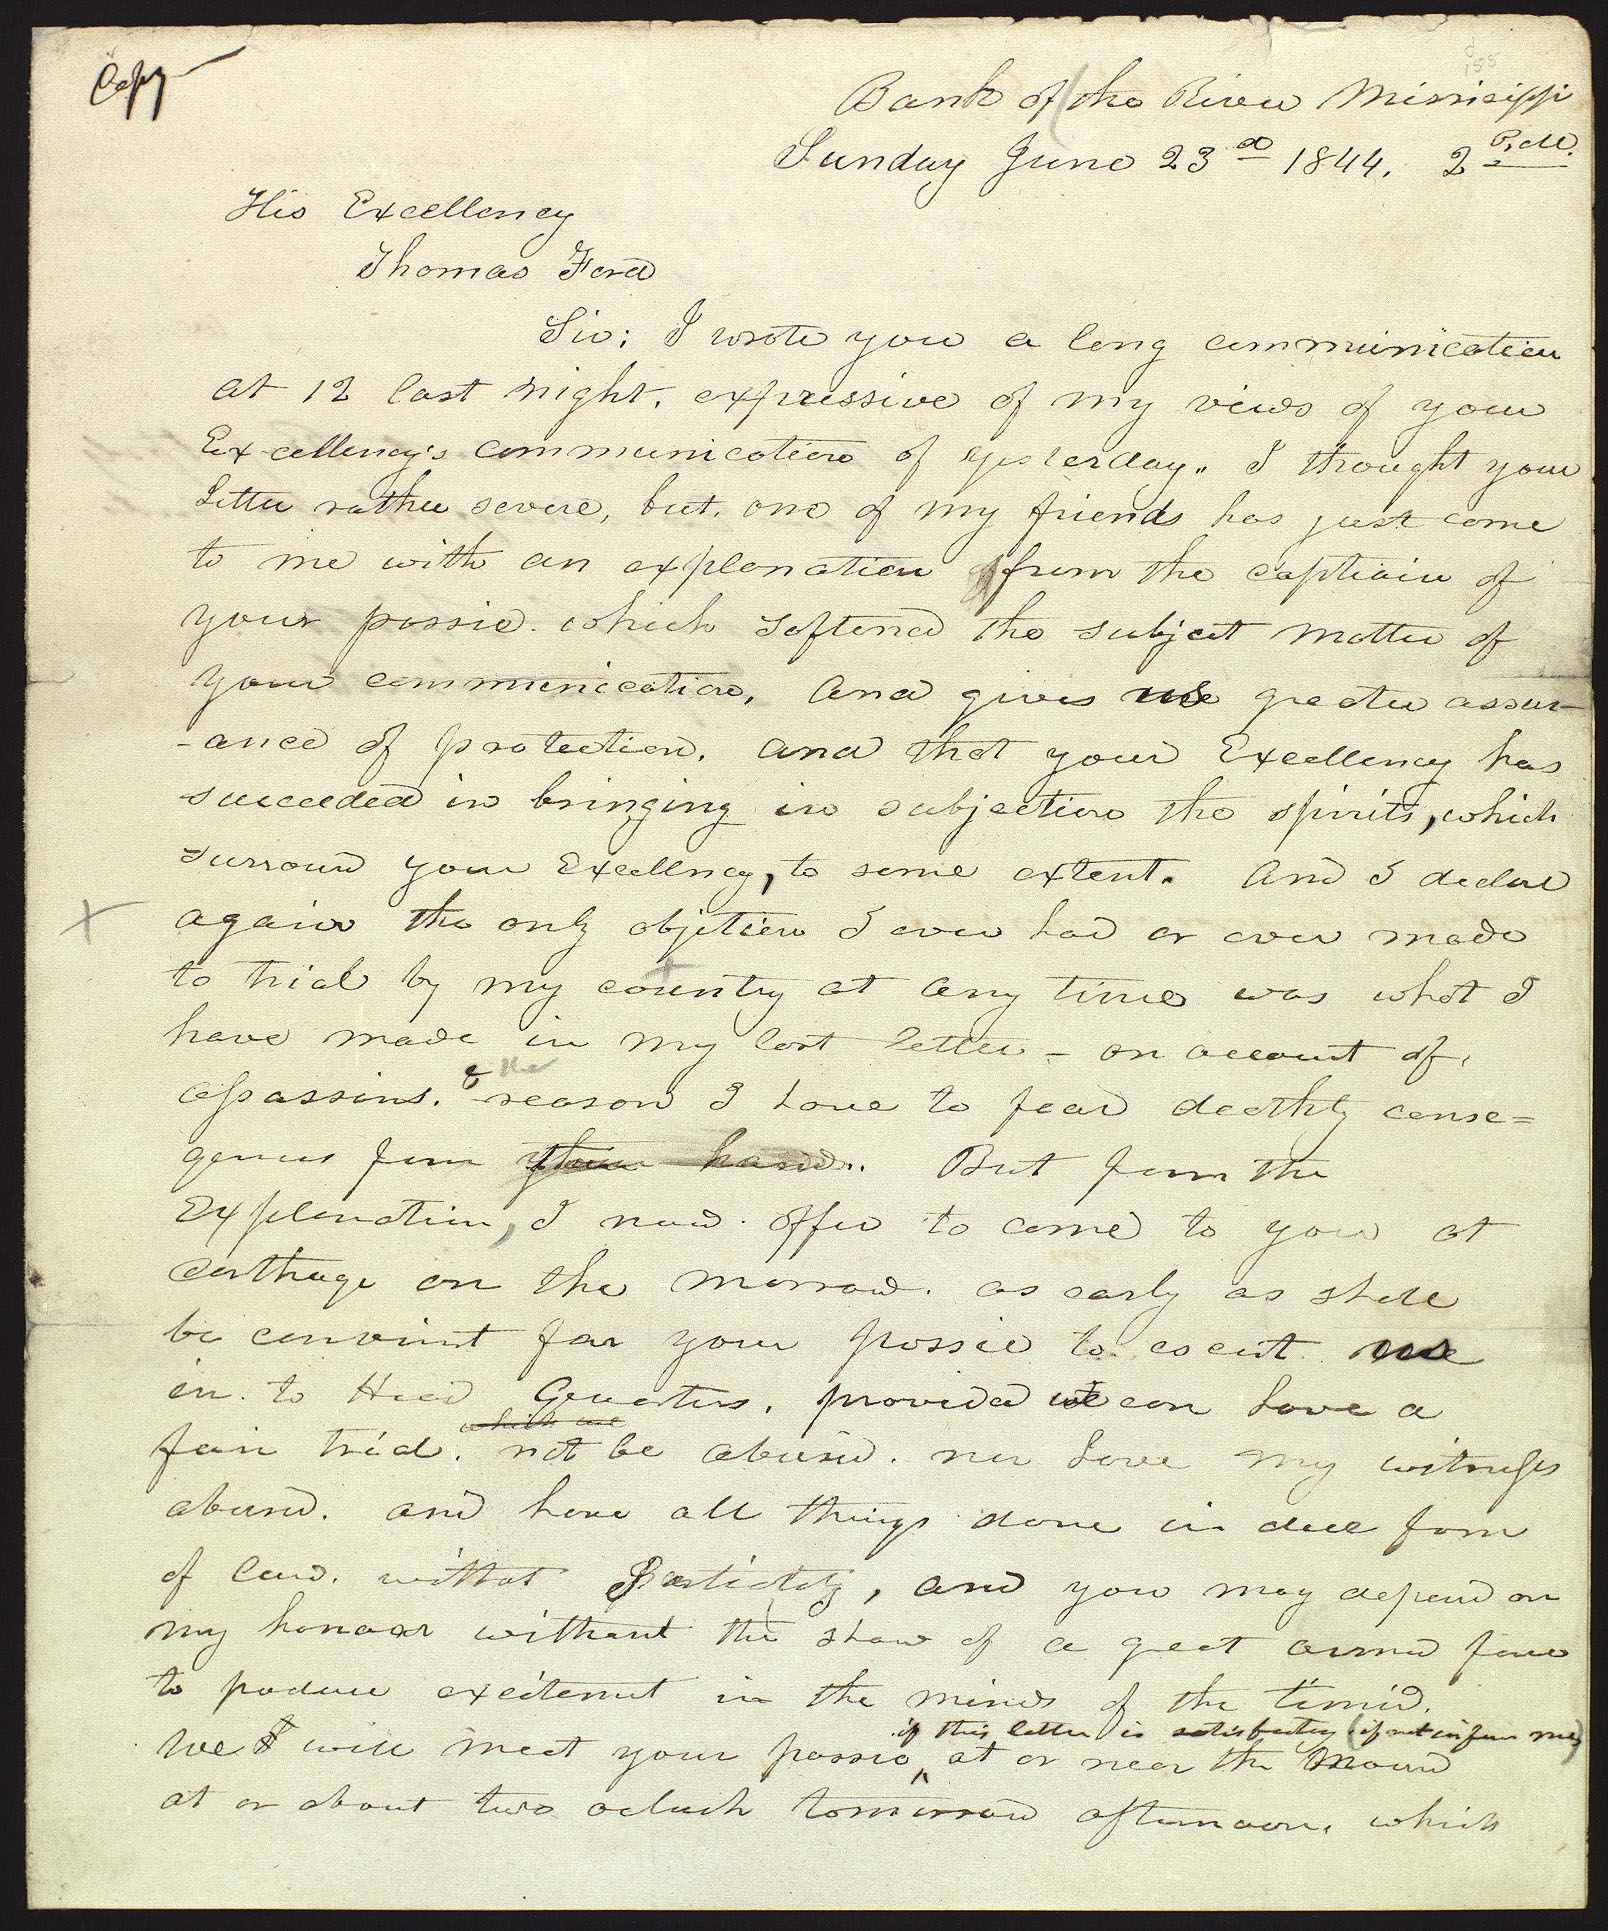 Copy
155
Bank of the River Missisippi
Sunday June 23d 1844. 2 P.M.
His Excellency
Thomas Ford
Sir; I wrote you a long communication
at 12 last night. expressive of my views of your
Excellency's communication of yesterday.. I thought your
Letter rather severe, but. one of my friends has just come
to me with an explanation from the captiain of
your possie. which softened the subject matter of
your communication, and gives us greater assur-
-ance of protection. and that your Excellency has
succeeded in bringing in subjection the spirits, which
surround your Excellncy, to some extent. And I declare
again the only objetion I ever had or ever made
to trial by my country at any time was what I
have made in my last letter - on account of,
assassins. & the reason I have to fear deathly conse=
quences from their hands. But from the
Explanation, I now. offer to come to you at
Carthage on the morrow. as early as shall
be convient for your possie to. escort me
in. to Head Quarters, provided we can have a
which we
fair trial. not be abused. nor have my witnesses
abused. and have all things done in due form
of law. without Partiality, and you may depend on
my honoor without the show of a great armed force
to produce excitement in the minds of the timid.
if this letter is satisfactory (if not inform me)
We I will meet your possie ^ at or near the Mound
at or about two oclock tomorrow afternoon. which